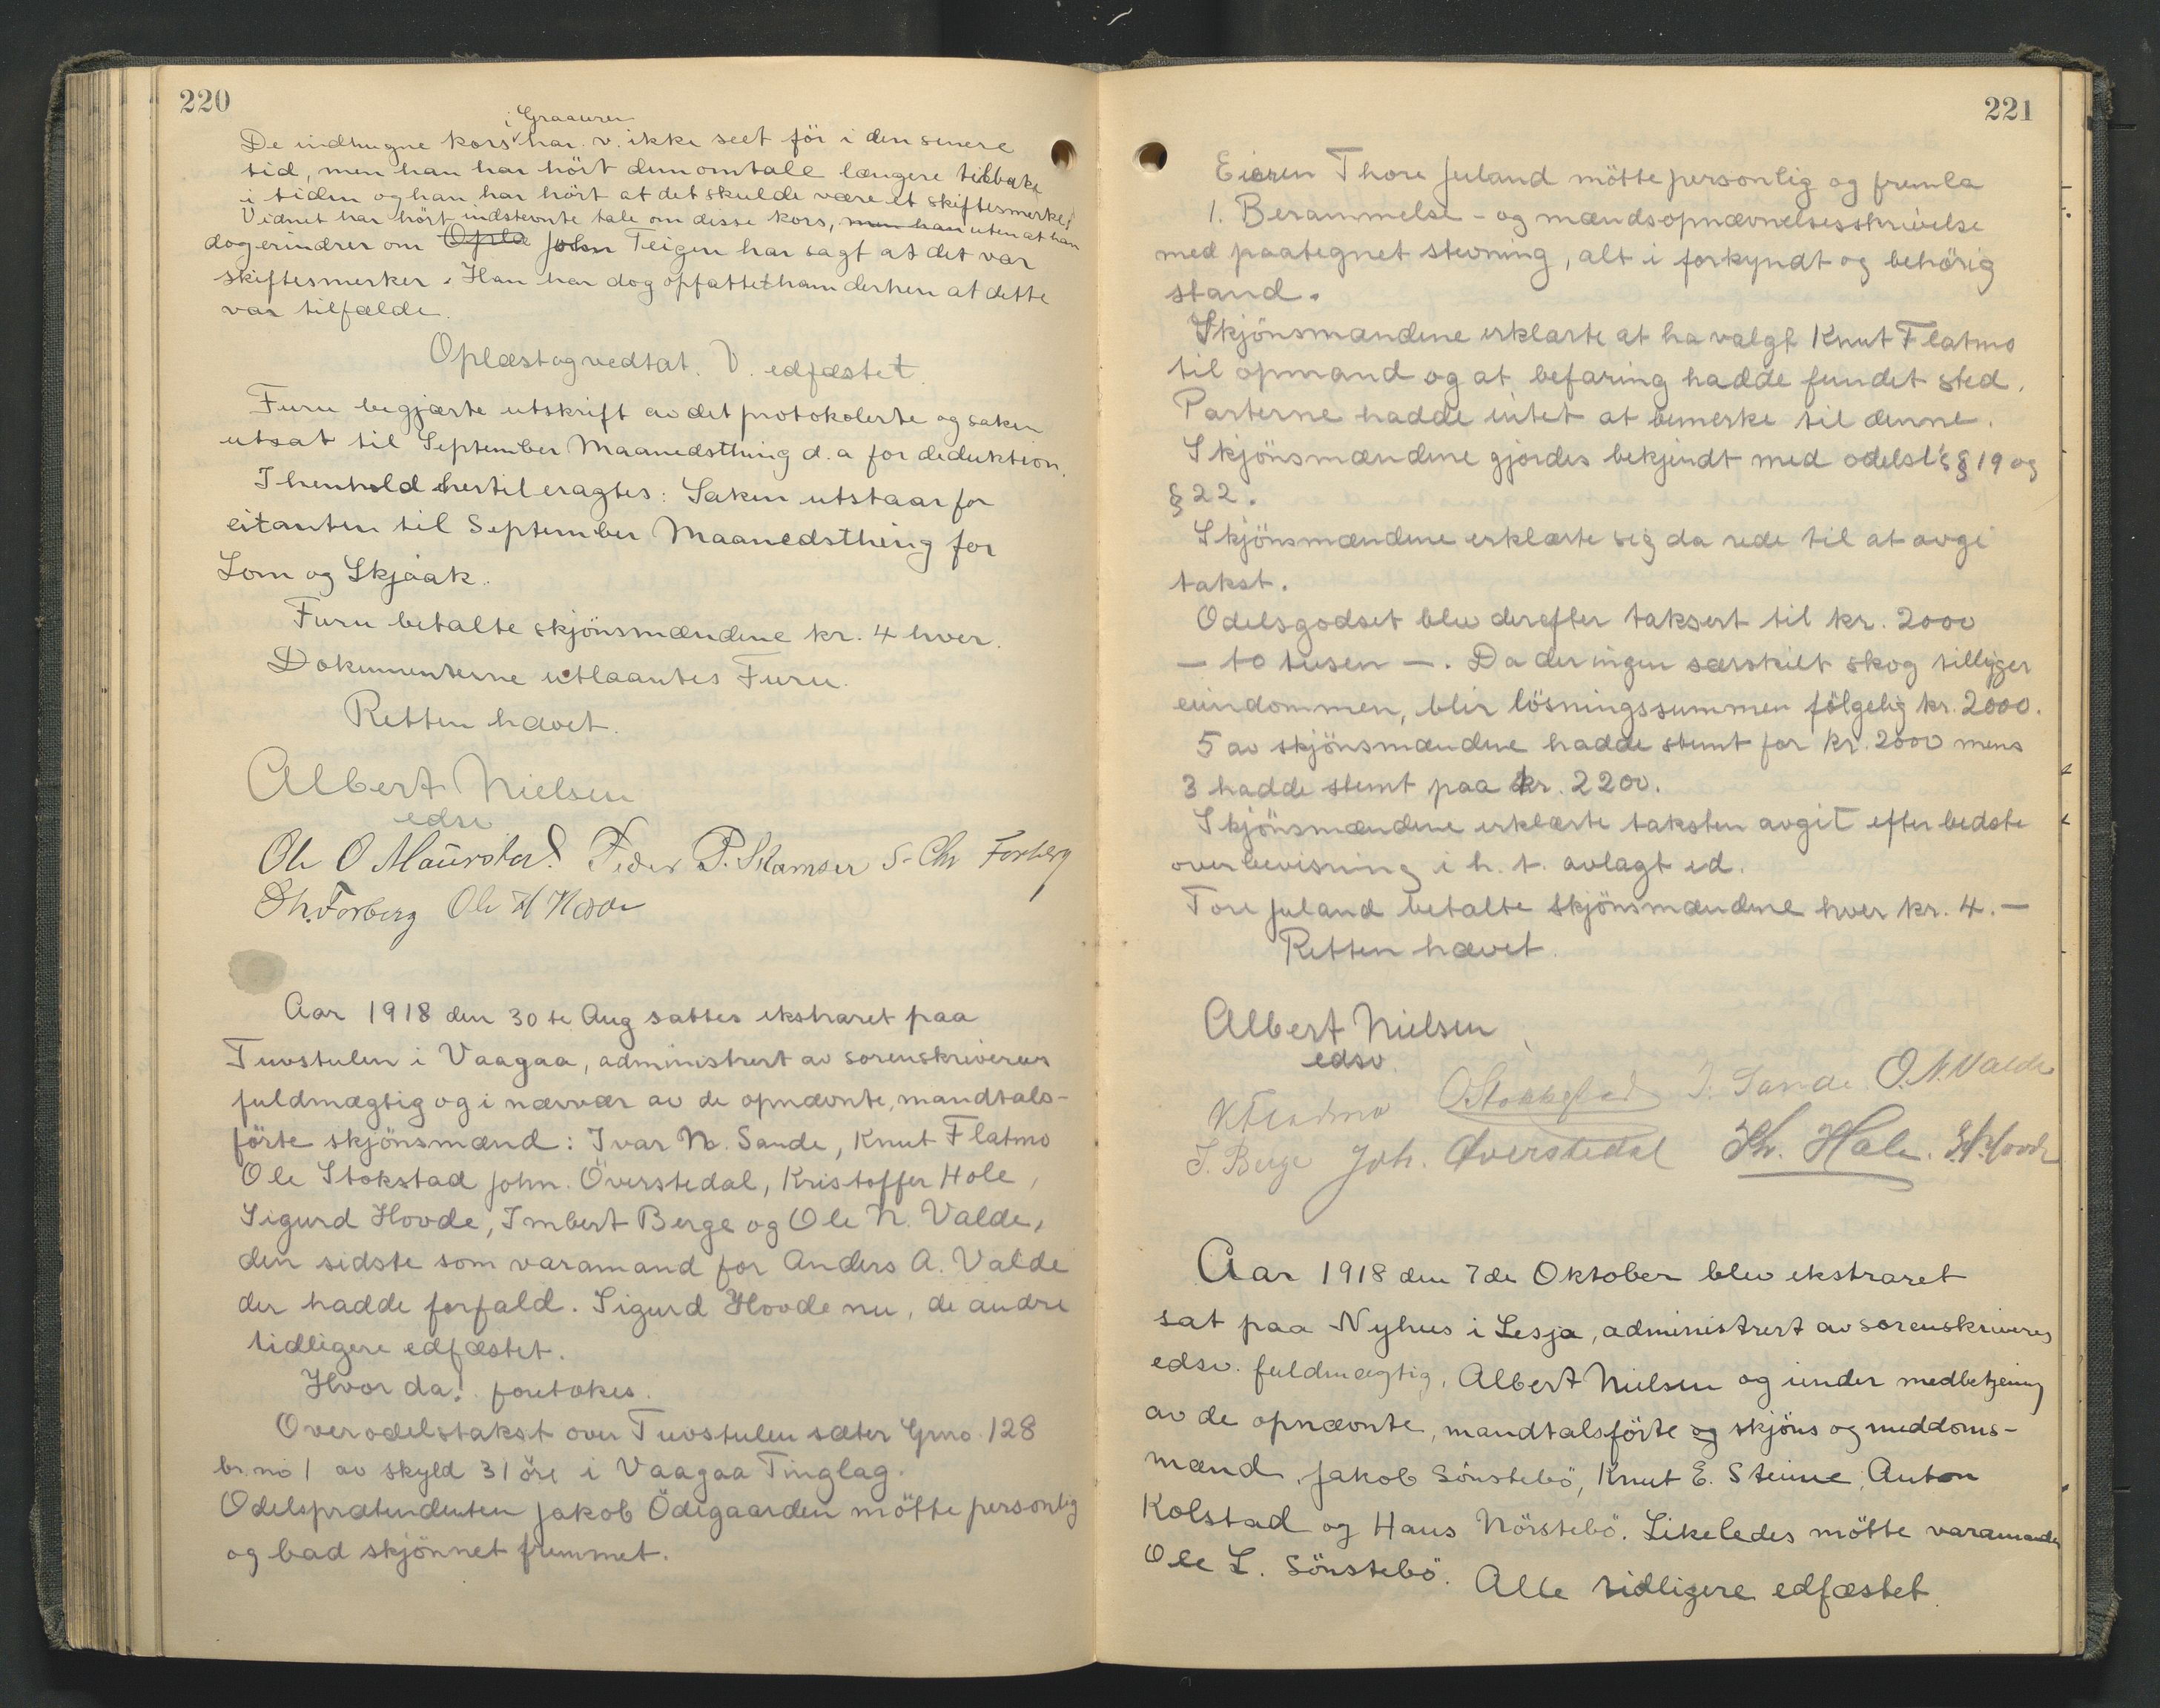 220
i Graauren
De indhugne kors har v. ikke seet för i den senere
tid, men han har hört dem omtale længere tilbake
i tiden og han har hört at det skulde være et skiftesmerke.
Vidnet har hört indstevnte tale om disse kors, men han uten at han
dog erindrer om Opla John Teigen har sagt at det var
skiftesmerker. Han har dog opfattet ham derhen at dette
var tilfælde.
Oplæst og vedtat. V. edfæstet.
Furu begjærte utskrift av det protokolerte og saken
utsat til September Maanedsthing d.a for deduktion.
I henhold hertil eragtes: Saken utstaar for
citanten til September Maanedsthing for
Lom og Skjaak.
Furu betalte skjönsmændene kr. 4 hver.
Dokumenterne utlaantes Furu.
Retten hævet.
Albert Nielsen
edsv
Ole O Maurstad. Peder P. Skamsar S. Chr Forberg
Th. Forberg Ole H
Aar 1918 den 30te Aug sattes ekstraret paa
Tuvstulen i Vaagaa, administrert av sorenskriverens
fuldmægtig og i nærvær av de opnævnte, mandtals-
förte skjönsmænd: Ivar N. Sande, Knut Flatmo
Ole Stokstad John. Överstedal, Kristoffer Hole,
Sigurd Hovde, Imbert Berge og Ole N. Valde,
den sidste som varamand for Anders A. Valde
der hadde forfald. Sigurd Hovde nu, de andre
tidligere edfæstet.
Hvor da! foretokes.
Overodelstakst over Tuvstulen sæter Gnro. 128
br.no 1 av skyld 31 öre i Vaagaa Tinglag.
Odelsprætendenten Jakob Ödegaarden mötte personlig
og bad skjönnet fremmet.
221
Eieren Thore Juland mötte personlig og fremla
1. Berammelse- og mændsopnævnelsesskrivelse
med paategnet stevning, alt i forkyndt og behörig
stand.
Skjönsmændene erklærte at ha valgt Knut Flatmo
til opmand og at befaring hadde fundet sted.
Parterne hadde intet at bemerke til denne.
Skjönsmændene gjordes bekjendt med odelsl's § 19 og
§ 22.
Skjönsmændene erklærte sig da rede til at avgi
takst.
Odelsgodset blev derefter taksert til kr. 2000
— to tusen —. Da der ingen særskilt skog tilligger
eiendommen, blir lösningssummen fölgelig kr. 2000.
5 av skjönsmændene hadde stemt for kr. 2000 mens
3 hadde stemt paa kr. 2200.
Skjönsmændene erklærte taksten avgit efter bedste
overbevisning i h. t. avlagt ed.
Tore Juland betalte skjönsmændene hver kr. 4.—
Retten hævet.
Albert Nielsen
edsv.
K Fladmo O Stokkstad I. Sande O.N. Valde
I. Berge Joh. Øverstedal Kr. Hole. S. Hovde
Aar 1918 den 7de Oktober blev ekstraret
sat paa Nyhus i Lesja, administrert av sorenskriverens
edsv. fuldmægtig, Albert Nielsen og under medbetjening
av de opnævnte, mandtalsförte og skjöns og meddoms-
mænd, Jakob Sönstebö, Knut E. Steine, Anton
Kolstad og Hans Nörstebö. Likeledes mötte varamanden
Ole L. Sönstebö. Alle tidligere edfæstet.